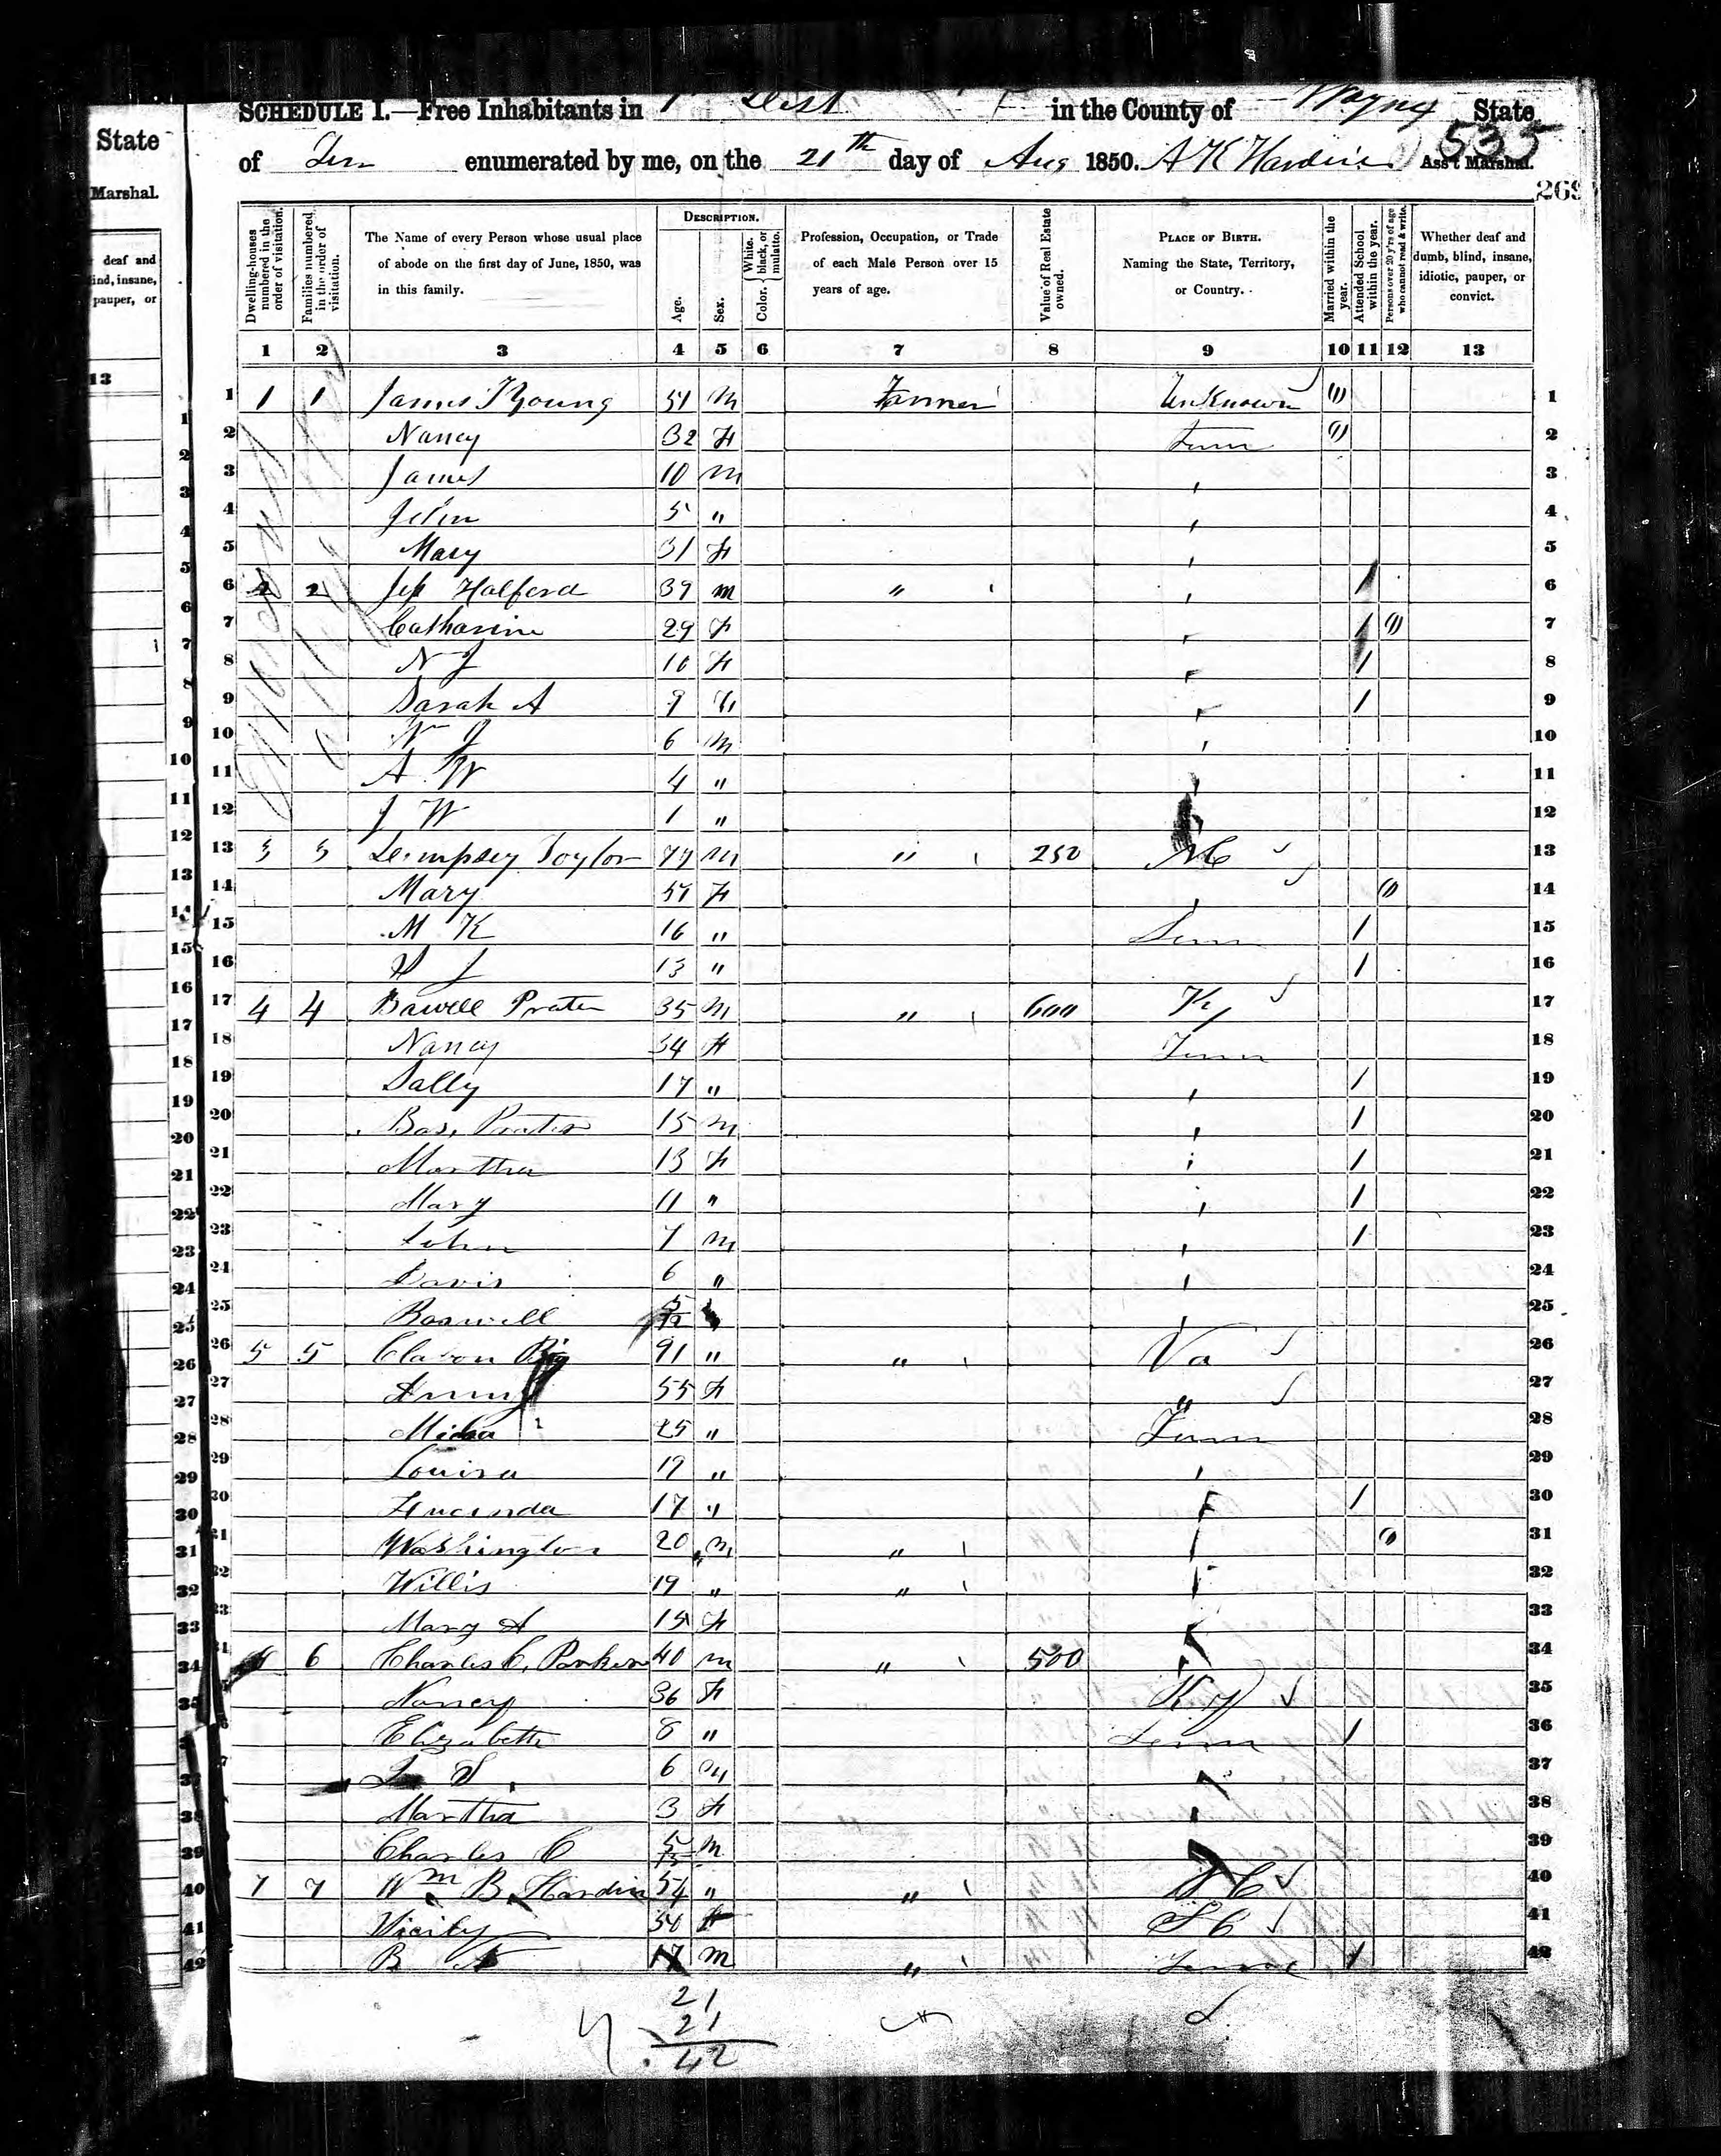 SCHEDULE I.—Free Inhabitants in 1st Dist in the County of Wayne State
of Ten enumerated by me, on the 21th day of Aug 1850. A K Hardin Ass't Marshal.
535
269
State
Marshal.
deaf and
ind, insane,
pauper, or
13
Dwelling-houses numbered in the order of visitation.
Families numbered in the order of visitation.
The Name of every Person whose usual place of abode on the first day of June, 1850, was in this family.
DESCRIPTION.
Age.
Sex.
Color. White, black, or mulatto.
Profession, Occupation, or Trade of each Male Person over 15 years of age.
Value of Real Estate owned.
PLACE OF BIRTH. Naming the State, Territory, or Country.
Married within the year.
Attended School within the year.
Persons over 20 y'rs of age who cannot read & write.
Whether deaf and dumb, blind, insane, idiotic, pauper, or convict.
1 2 3 4 5 6 7 8 9 10 11 12 13
1 1 1 James Young 51 M Farmer Unknown 1 1
2 Nancy 32 F Tenn 1 2
3 James 10 M 3
4 John 5 " 4
5 Mary 31 F 5
6 2 2 Halford 39 m " 1 6
7 Catharine 29 F 1 1 7
8 N J 10 F 1 8
9 Sarah A 9 " 1 9
10 Wm J 6 M 10
11 A W 4 " 11
12 J W 1 " 12
13 3 3 Dempsey Taylor 77 M " 250 NC 13
14 Mary 57 F 1 14
15 M K 16 " Tenn 1 15
16 J 13 " 1 16
17 4 4 Bawell Prater 35 M " 600 Ky 17
18 Nancy 34 F Tenn 18
19 Sally 17 " 1 19
20 Bas. Prater 15 M 1 20
21 Martha 13 F 1 21
22 Mary 11 " 1 22
23 John 7 M 1 23
24 Davis 6 " 24
25 Boswell 5/12 25
26 5 5 Clabon 91 " " Va 26
27 55 F " 27
28 25 " Tenn 28
29 Louisa 19 " 29
30 Lucinda 17 " 1 30
31 Washington 20 M " 1 31
32 Willis 19 " " 32
33 Mary A 15 F 33
34 6 Charles C. Parker 40 M " 500 34
35 Nancy 36 F Ky 35
36 Elizabeth 8 " Tenn 1 36
37 6 M 37
38 Martha 3 F 38
39 Charles C 5/12 M 39
40 7 7 Wm B Hardin 54 " " SC 40
41 Vicily 50 F SC 41
42 B 17 M " Tenn 1 42
21
21
42